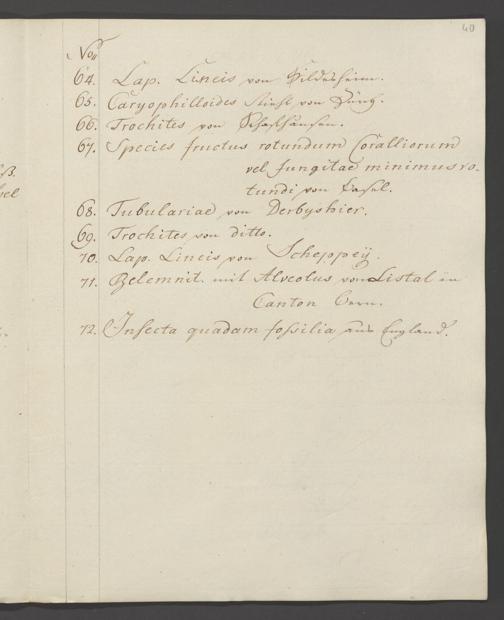 40
No
64. Lap. Lincis von Hildesheim.
65. Caryophilloides von
66. Trochites von Schafhausen.
67. Species fructus rotundum Coralliorum
vel fungitae minimus ro-
tundi von Basel.
68. Tubulariae von Derbyshier.
69. Trochites von ditto.
70. Lap. Lincis von Scheppeÿ.
71. Belemnit. mit Alveolus von Listal in
Canton Bern.
72. Insecta quadam fossilia aus England.